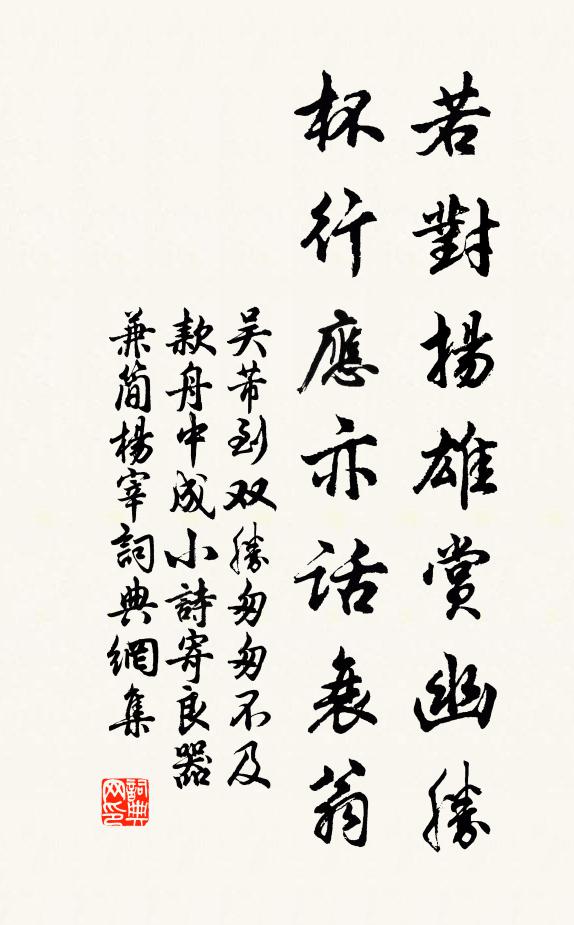 若對揚雄賞幽勝
杯行應亦話衰翁
吴芾到双勝匆匆不及
款舟中成小詩寄良器
兼簡楊宰詞典網集
詞典网印